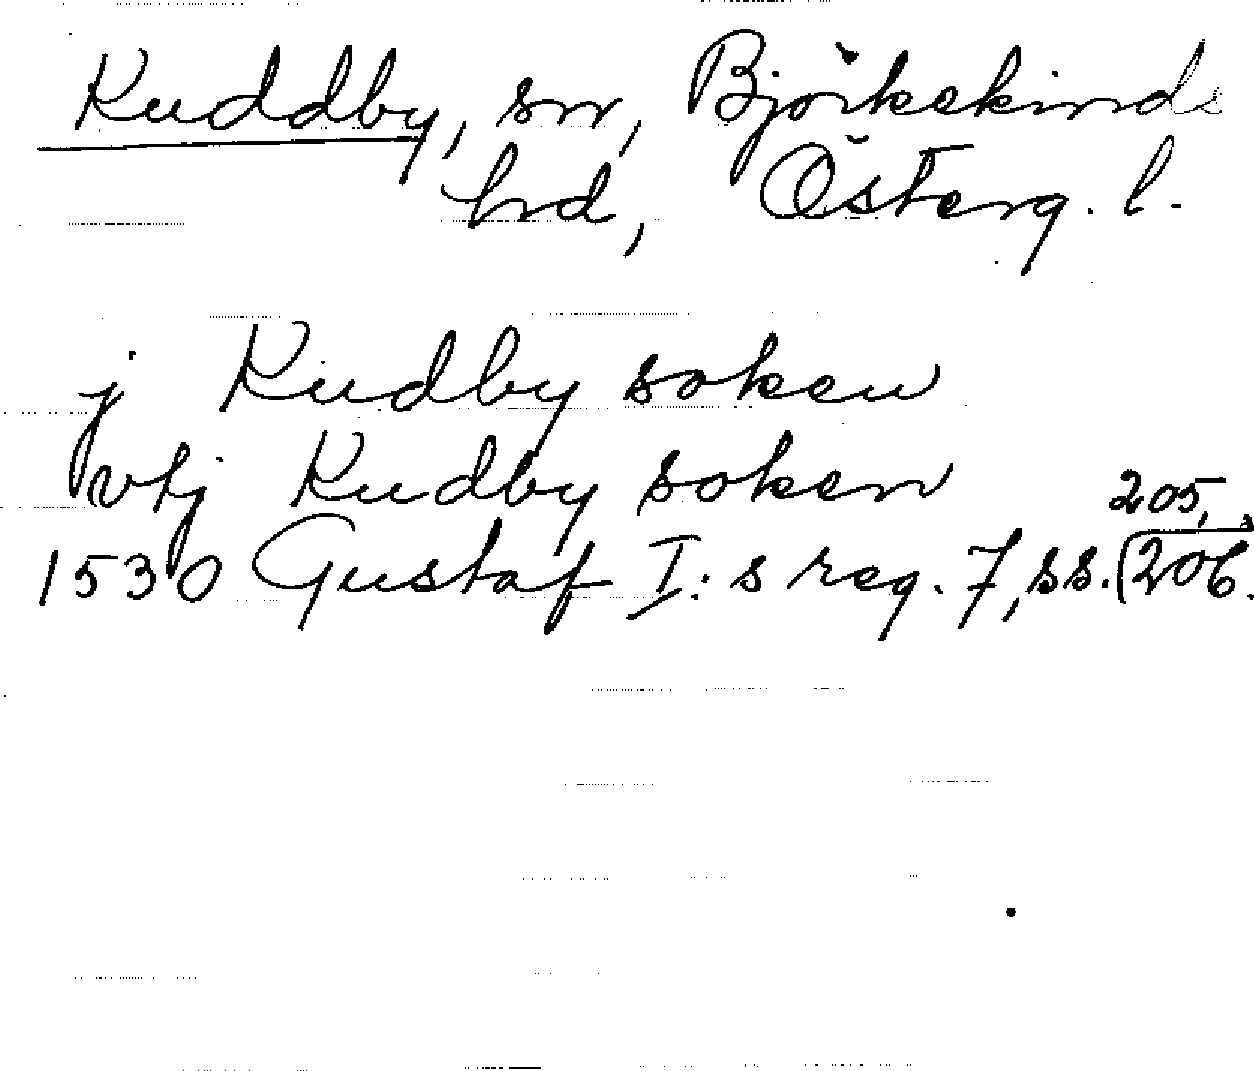 Kuddby, sn, Björkekinds
hd, Österg. l.
j Kudby soken
vtj Kudby soken
205,
1530 Gustaf I:s reg. 7, ss. 206.